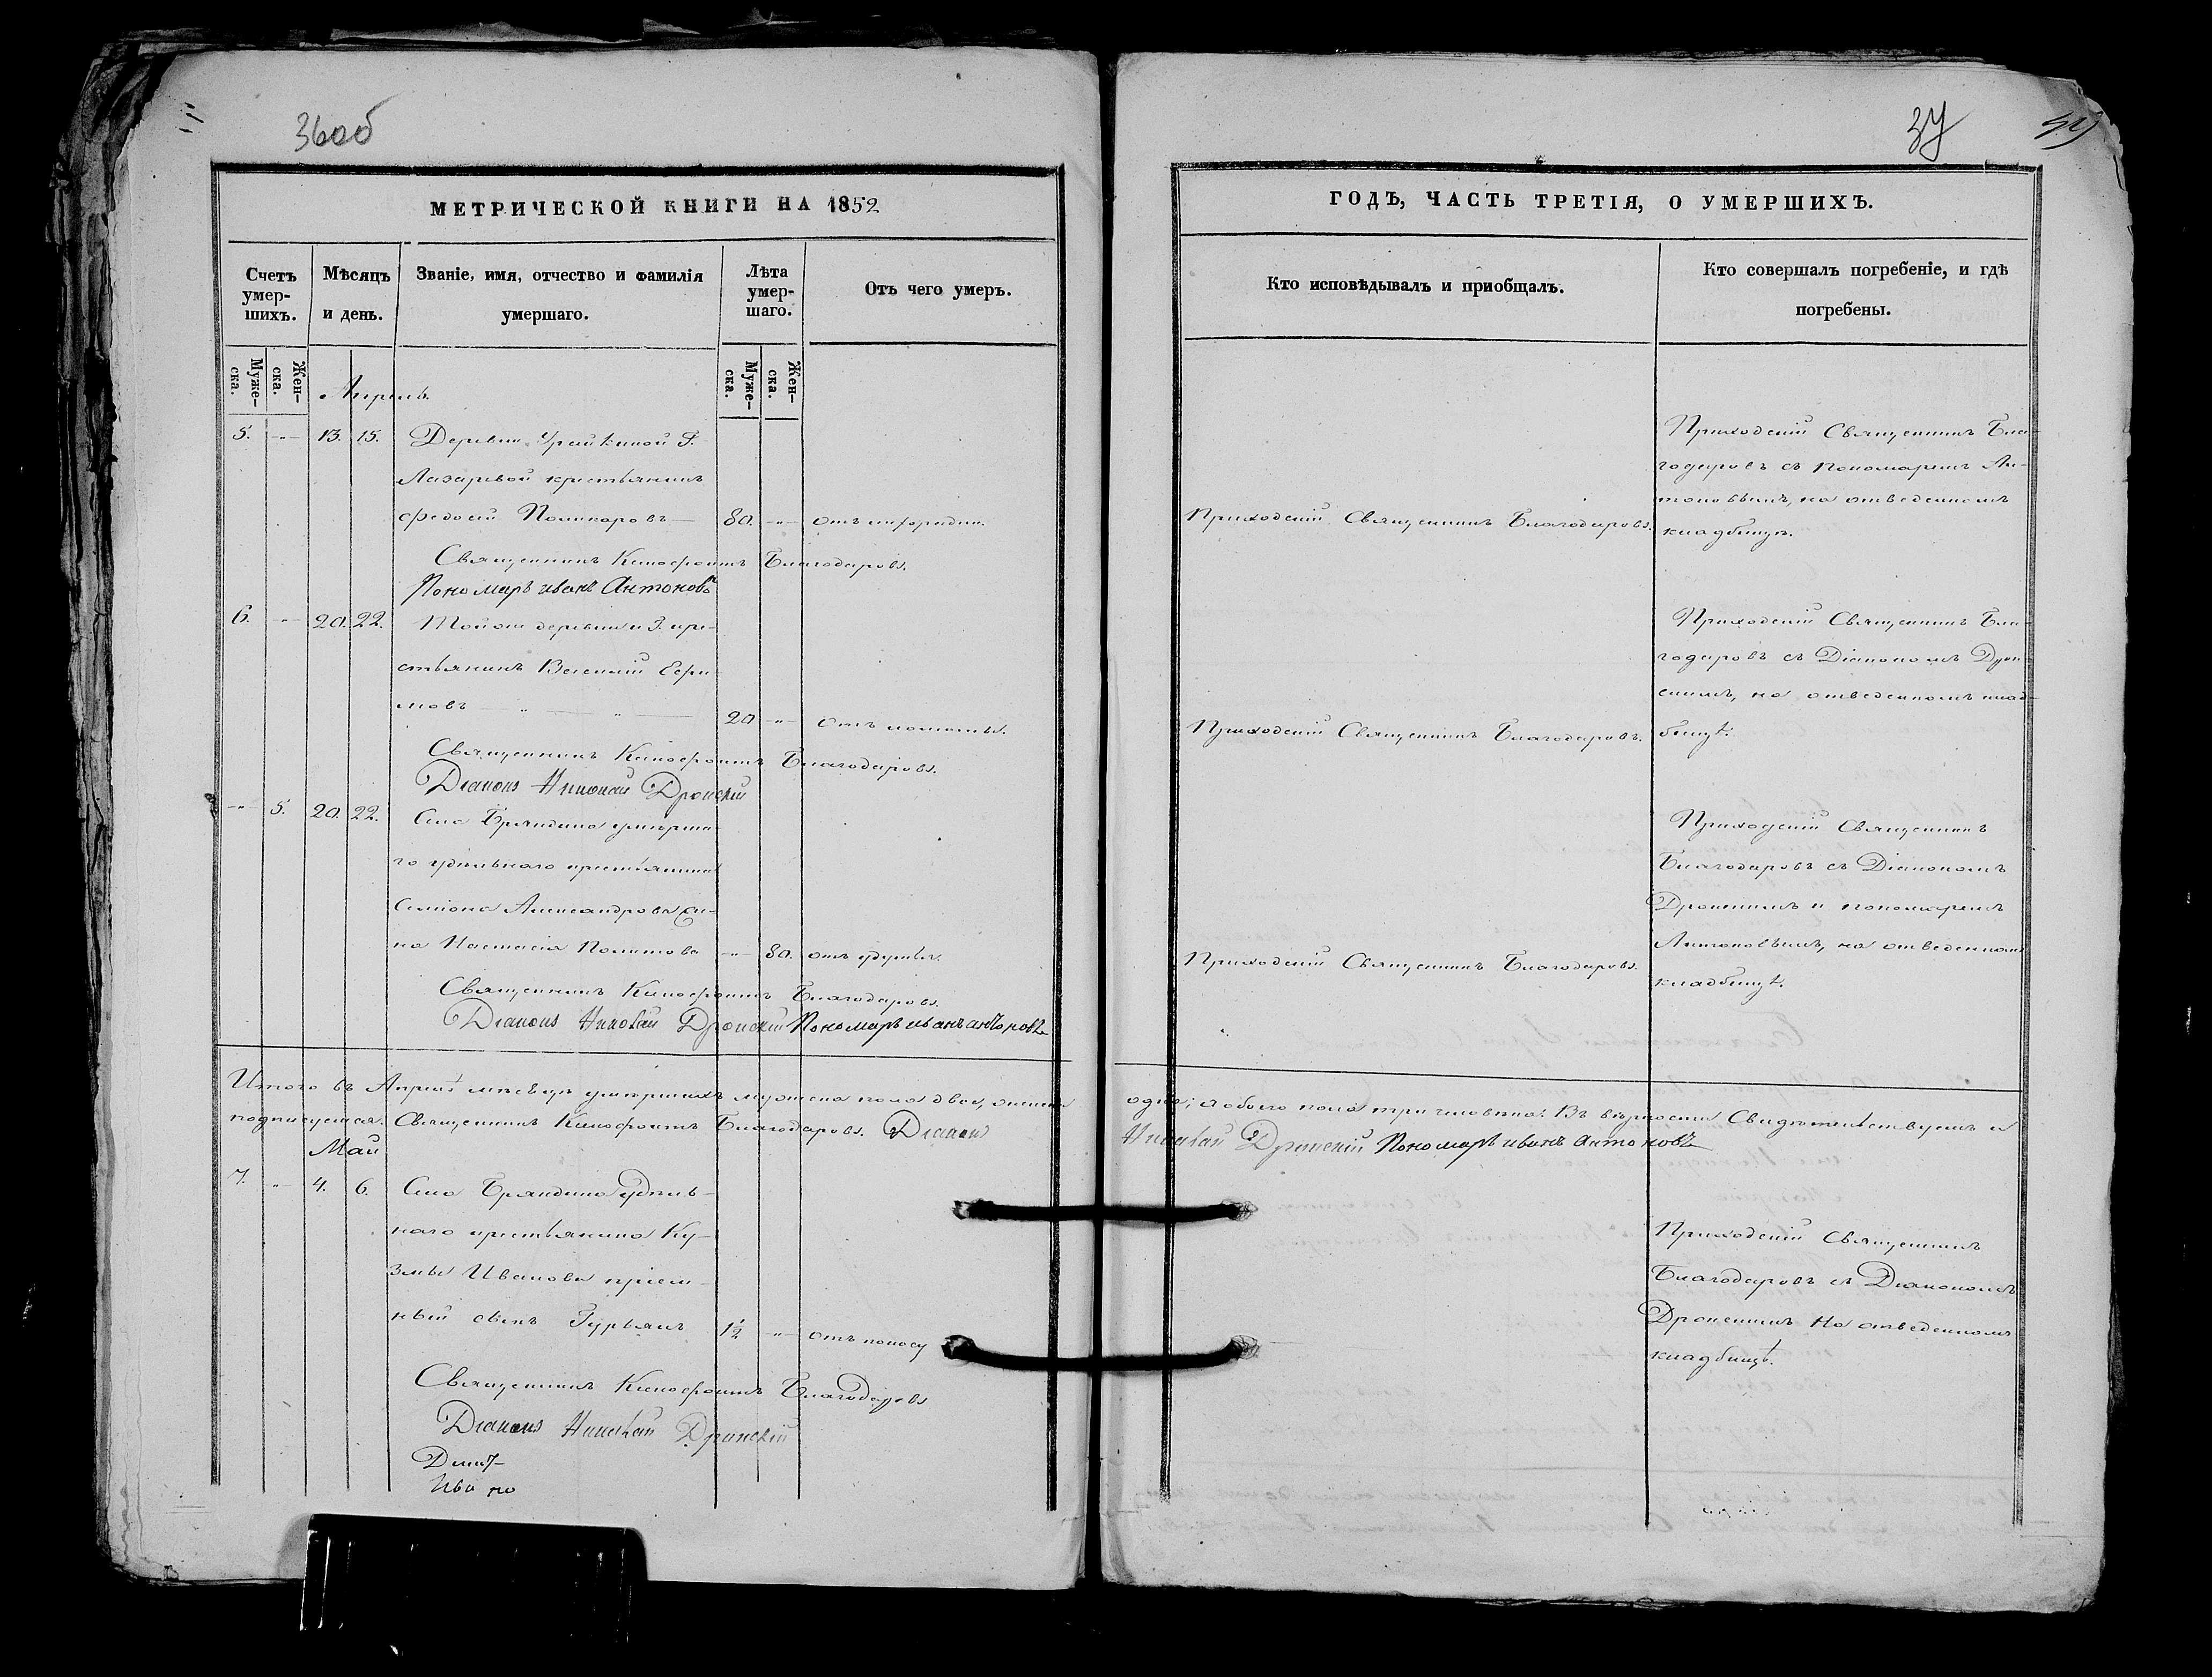 36об
МЕТРИЧЕСКОЙ КНИГИ НА 1852
Счетъ умер-шихъ.
Мѣсяцъ и день.
Званіе, имя, отчество и фамилія умершаго.
Лѣта умер-шаго.
Отъ чего умеръ.
Муже-ска.
Жен-ска.
Муже-ска.
Жен-ска.
Апрель.
5. -"- 13. 15. Деревни
Лазаревой крестьянинъ
Федосей Поликаровъ 80. -"-
Священникъ Ксенофонтъ Благодаровъ.
Пономарь иванъ Антоновъ
6. -"- 20. 22. Той же деревни и З. кре-
стьянинъ Евфи-
мовъ 20 -"- Отъ
Священникъ Ксенофонтъ Благодаровъ.
Діаконъ Николай Дронскій
-"- 5. 20. 22. Села Бряндина умерша-
го удѣльнаго крестьянина
Симіона Александрова же-
на Настасія Политова -"- 80. отъ удушья.
Священникъ Ксенофонтъ Благодаровъ.
Діаконъ Николай Дронскій Пономарь иванъ антоновъ
Итого въ Апрелѣ мѣсяцѣ умершихъ мужеска пола двое, женска
подписуемся. Священникъ Ксенофонтъ Благодаровъ. Діаконъ
Май
7. -"- 4. 6. Села Бряндина удѣль-
наго крестьянина Ку-
змы Иванова пріем-
ный сынъ Гурьянъ 1½ -"- отъ поносу
Священникъ Ксенофонтъ Благодаровъ
Діаконъ Николай Дронскій
37
ГОДЪ, ЧАСТЬ ТРЕТІЯ, О УМЕРШИХЪ.
Кто исповѣдывалъ и пріобщалъ.
Кто совершалъ погребеніе, и гдѣ погребены.
Приходскій Священникъ Благодаровъ.
Приходскій Священникъ Бла-
годаровъ съ Пономаремъ Ан-
тоновымъ, на отведенномъ
кладбищѣ.
Приходскій Священникъ Благодаровъ.
Приходскій Священникъ Бла-
годаровъ съ Діакономъ Дрон-
скимъ, на отведенномъ клад-
бищѣ.
Приходскій Священникъ Благодаровъ.
Приходскій Священникъ
Благодаровъ съ Діакономъ
Дронскимъ и пономаремъ
Антоновымъ, на отведенномъ
кладбищѣ.
одна; а обоего пола три человѣка. Въ вѣрности Свидѣтельствуемъ и
Николай Дронскій Пономарь иванъ антоновъ
Приходскій Священникъ
Благодаровъ съ Діакономъ
Дронскимъ на отведенномъ
кладбищѣ.